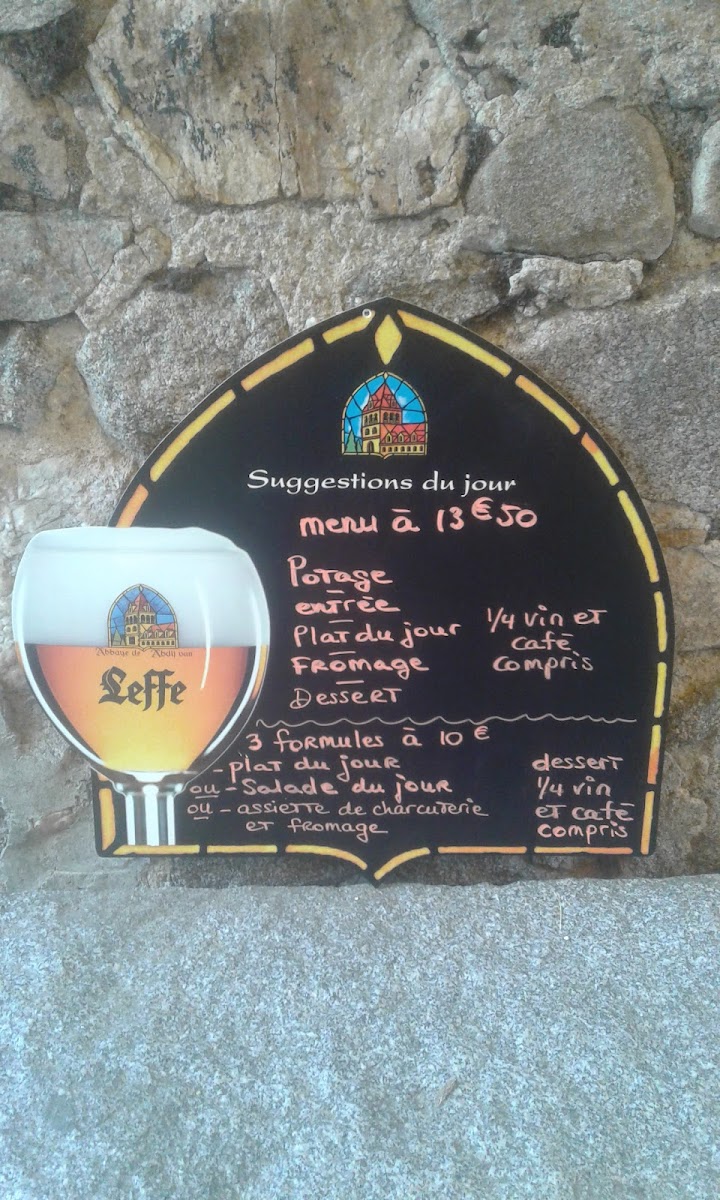 Suggestions du jour
menu à 13€50
Potage
entrée
Plat du jour
Fromage
Dessert
1/4 vin et
café
compris
3 formules à 10 €
- plat du jour
ou - Salade du jour
ou - assiette de charcuterie
et fromage
dessert
1/4 vin
et café
compris
Abbaye de Abdij van
Leffe